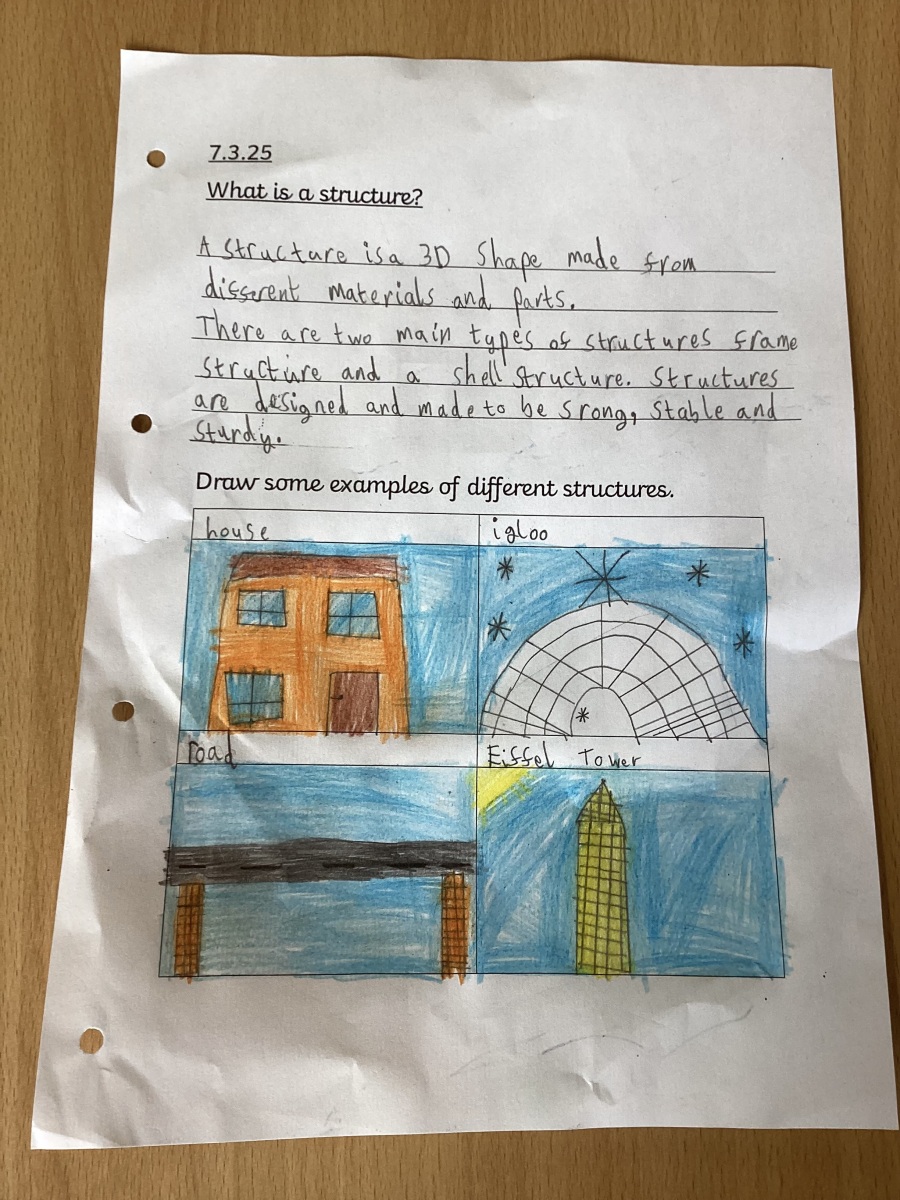 7.3.25
What is a structure?
A structure is a 3D shape made from
different materials and parts.
There are two main types of structures frame
structure and a shell structure. Structures
are designed and made to be srong, stable and
sturdy.
Draw some examples of different structures.
house
igloo
road
Eiffel Tower